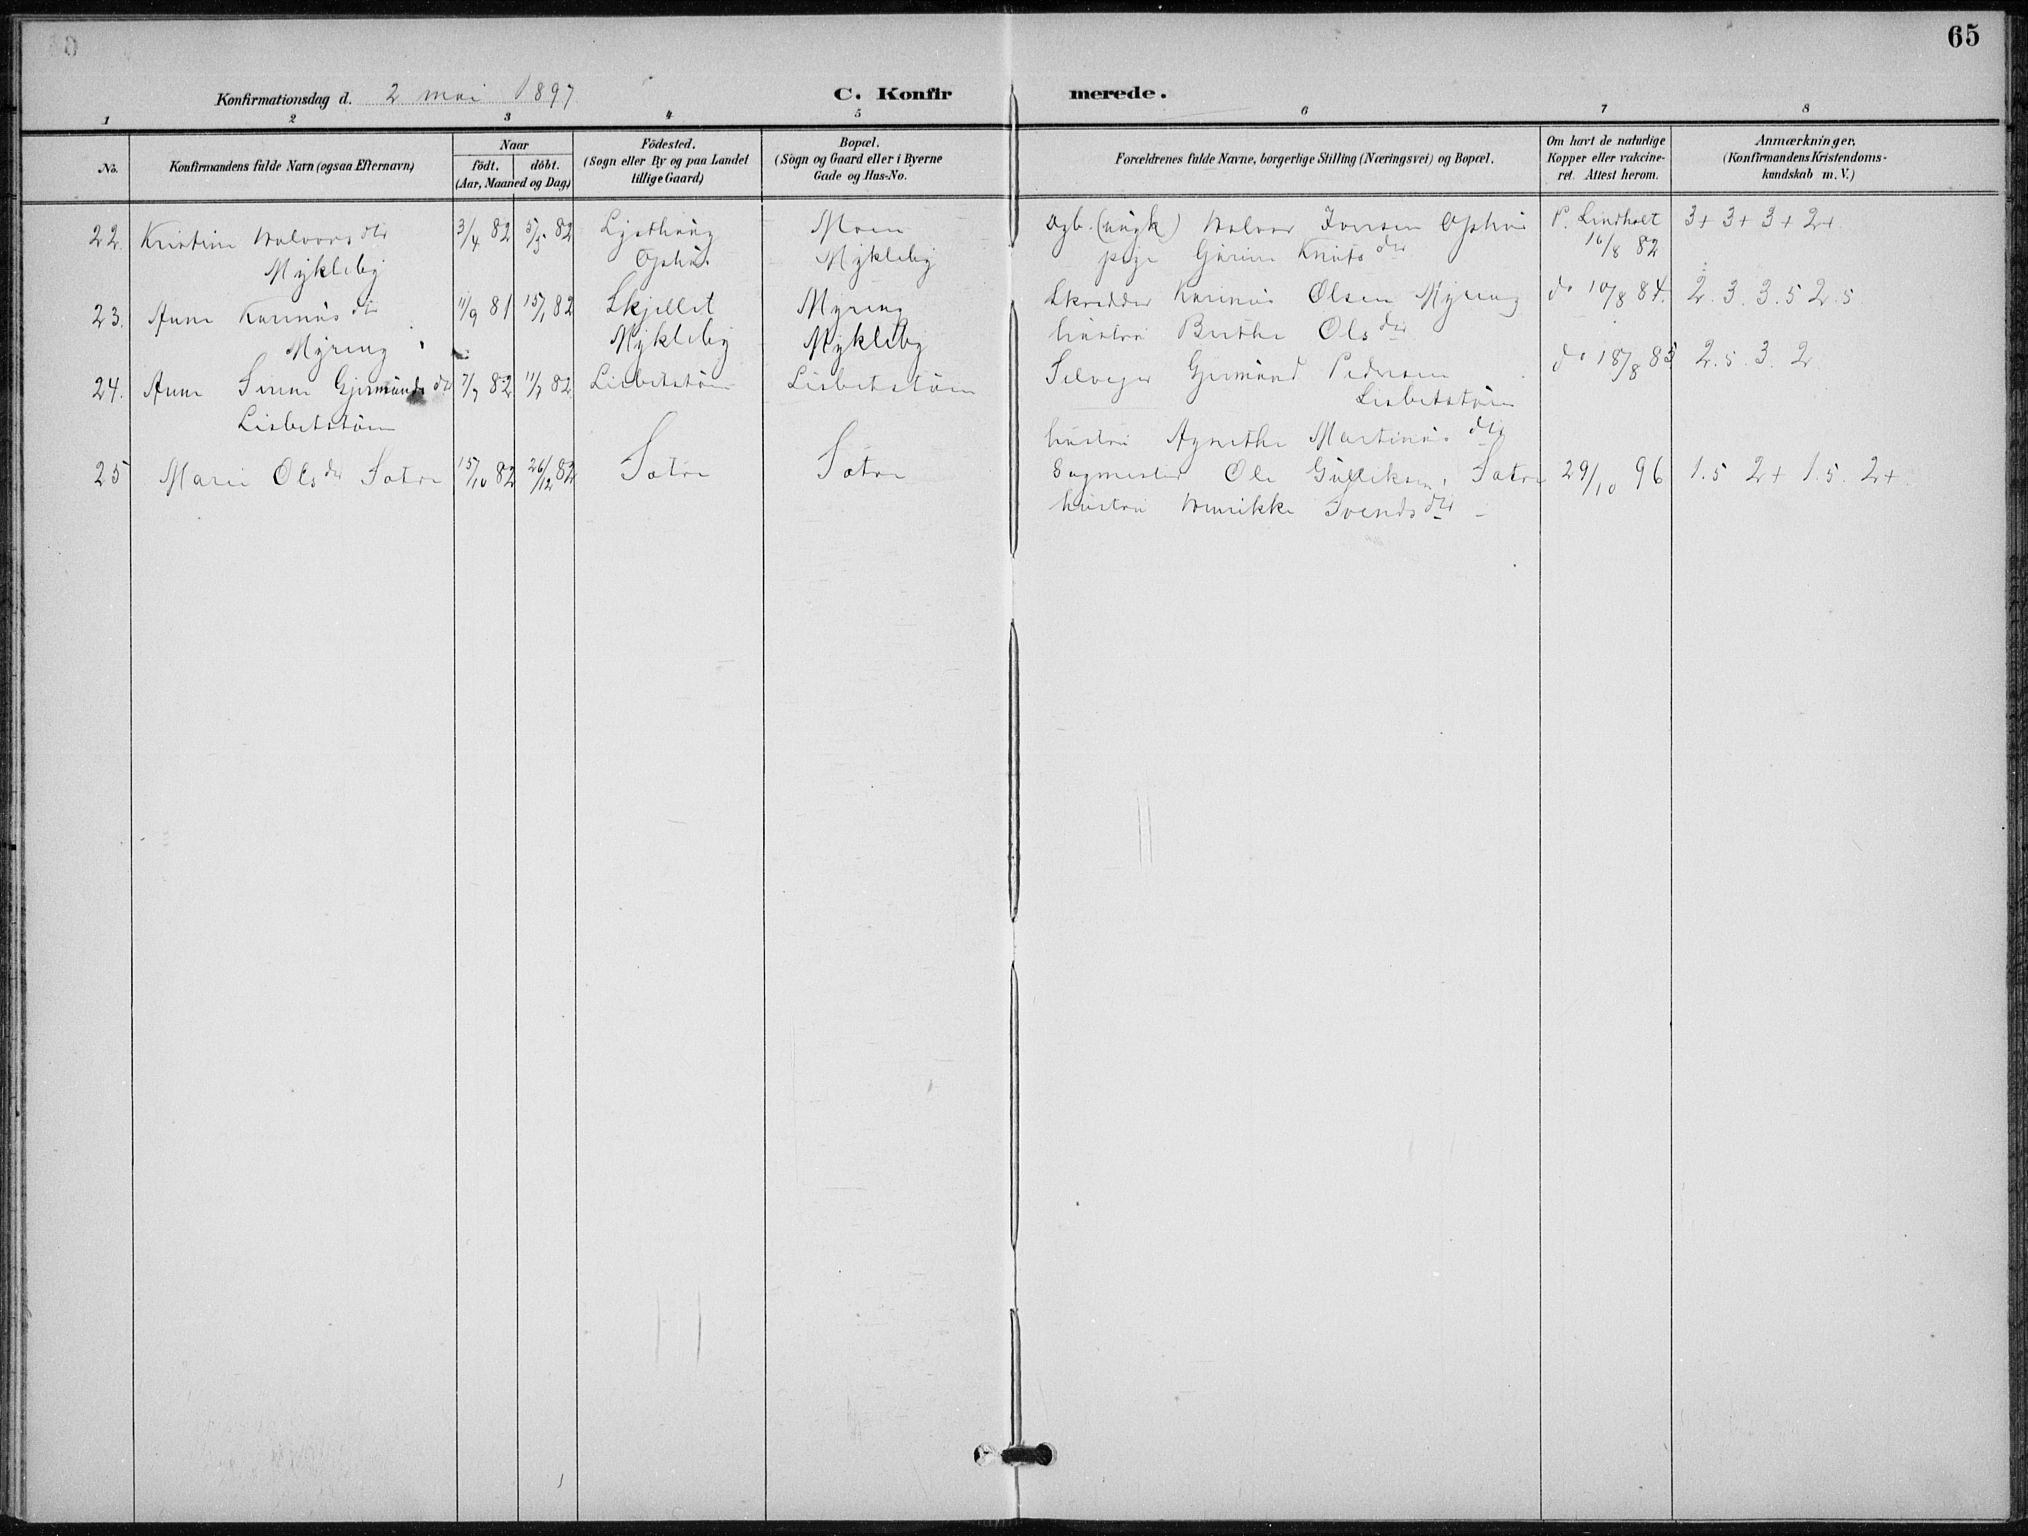 65
Konfirmationsdag d. 2 mai 1897
C. Konfirmerede.
1 2 3 4 5 6 7 8
No.
Konfirmandens fulde Navn (ogsaa Efternavn)
Naar
födt. döbt.
(Aar, Maaned og Dag)
Födested.
(Sogn eller By og paa Landet
tillige Gaard)
Bopæl.
(Sogn og Gaard eller i Byerne
Gade og Hus-No.
Forældrenes fulde Navne, borgerlige Stilling (Næringsvei) og Bopæl.
Om havt de naturlige
Kopper eller vakcine-
ret. Attest herom.
Anmærkninger,
(Konfirmandens Kristendoms-
kundskab m. V.)
22. Kristine Halvorsdtr 3/4 82 5/5 82 Moen Halvor Iversen P. Lindholt 3+ 3+ 3+ 2+
Mykleby Mykleby pige Knuts dtr 16/8 82
23. Anne Karinus dtr 11/9 81 15/1 82 Skjellet Myreng Skredder Karinus Olsen Myreng do 10/8 84. 2. 3. 3.5 2.5.
Myreng Mykleby Mykleby hustru Berthe Ols dtr
24. Anne Gjermunds dtr 7/7 82 82 Lisbetstøen Lisbetstøen Selveger Gjermund Pedersen do 18/8 83 2.5. 3. 2
Lisbetstøen Lisbetstøen
hustru Agnethe Martinus dtr
25 Marie Ols dtr Sætre 15/10 82 26/12 82 Sætre Sætre Sagmester Ole Gulliksen, Sætre 29/10 96 1.5 2+ 1.5. 2+.
hustru Henrikke Svends dtr